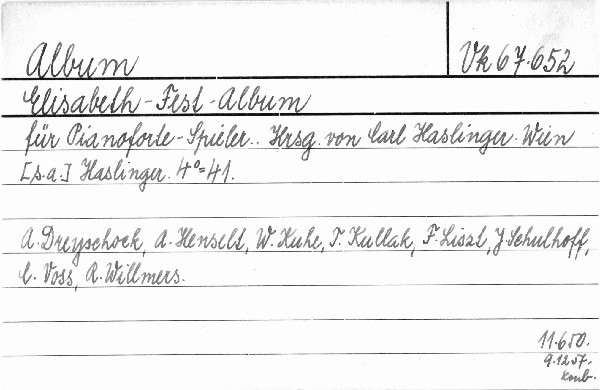 Album
Vk 67.652
Elisabeth-Fest-Album
für Pianoforte-Spieler.. Hrsg. von Carl Haslinger. Wien
[s.a.] Haslinger. 4°=41.
A. Dreyschock, A. Henselt, W. Kuhe, T. Kullak, F. Liszt, J. Schulhoff,
C. Voss, R. Willmers.
11.650.
9.12.57.